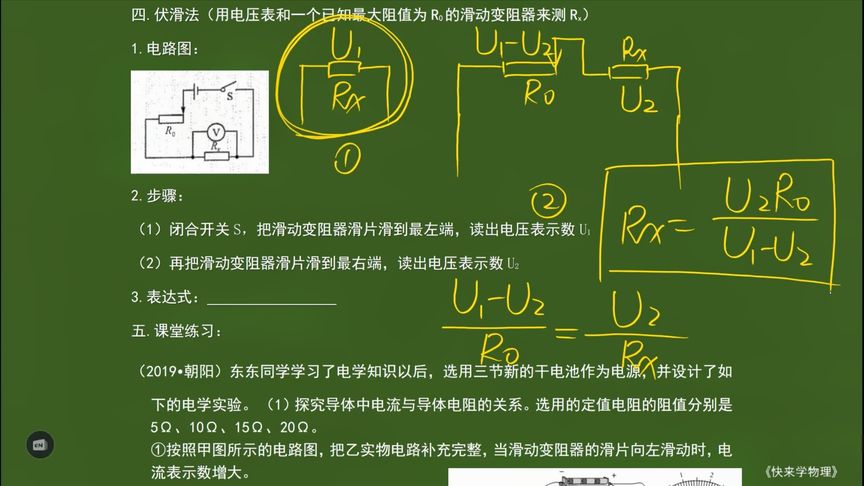 四.伏滑法（用电压表和一个已知最大阻值为 R0 的滑动变阻器来测 Rx）
1.电路图：
S
R0
V
Rx
U1
Rx
①
U1-U2
R0
Rx
U2
②
Rx = U2R0 / U1-U2
2.步骤：
（1）闭合开关 S，把滑动变阻器滑片滑到最左端，读出电压表示数 U1
（2）再把滑动变阻器滑片滑到最右端，读出电压表示数 U2
3.表达式：
U1-U2 / R0 = U2 / Rx
五.课堂练习：
（2019•朝阳）东东同学学习了电学知识以后，选用三节新的干电池作为电源，并设计了如
下的电学实验。（1）探究导体中电流与导体电阻的关系。选用的定值电阻的阻值分别是
5Ω、10Ω、15Ω、20Ω。
①按照甲图所示的电路图，把乙实物电路补充完整，当滑动变阻器的滑片向左滑动时，电
流表示数增大。
《快来学物理》